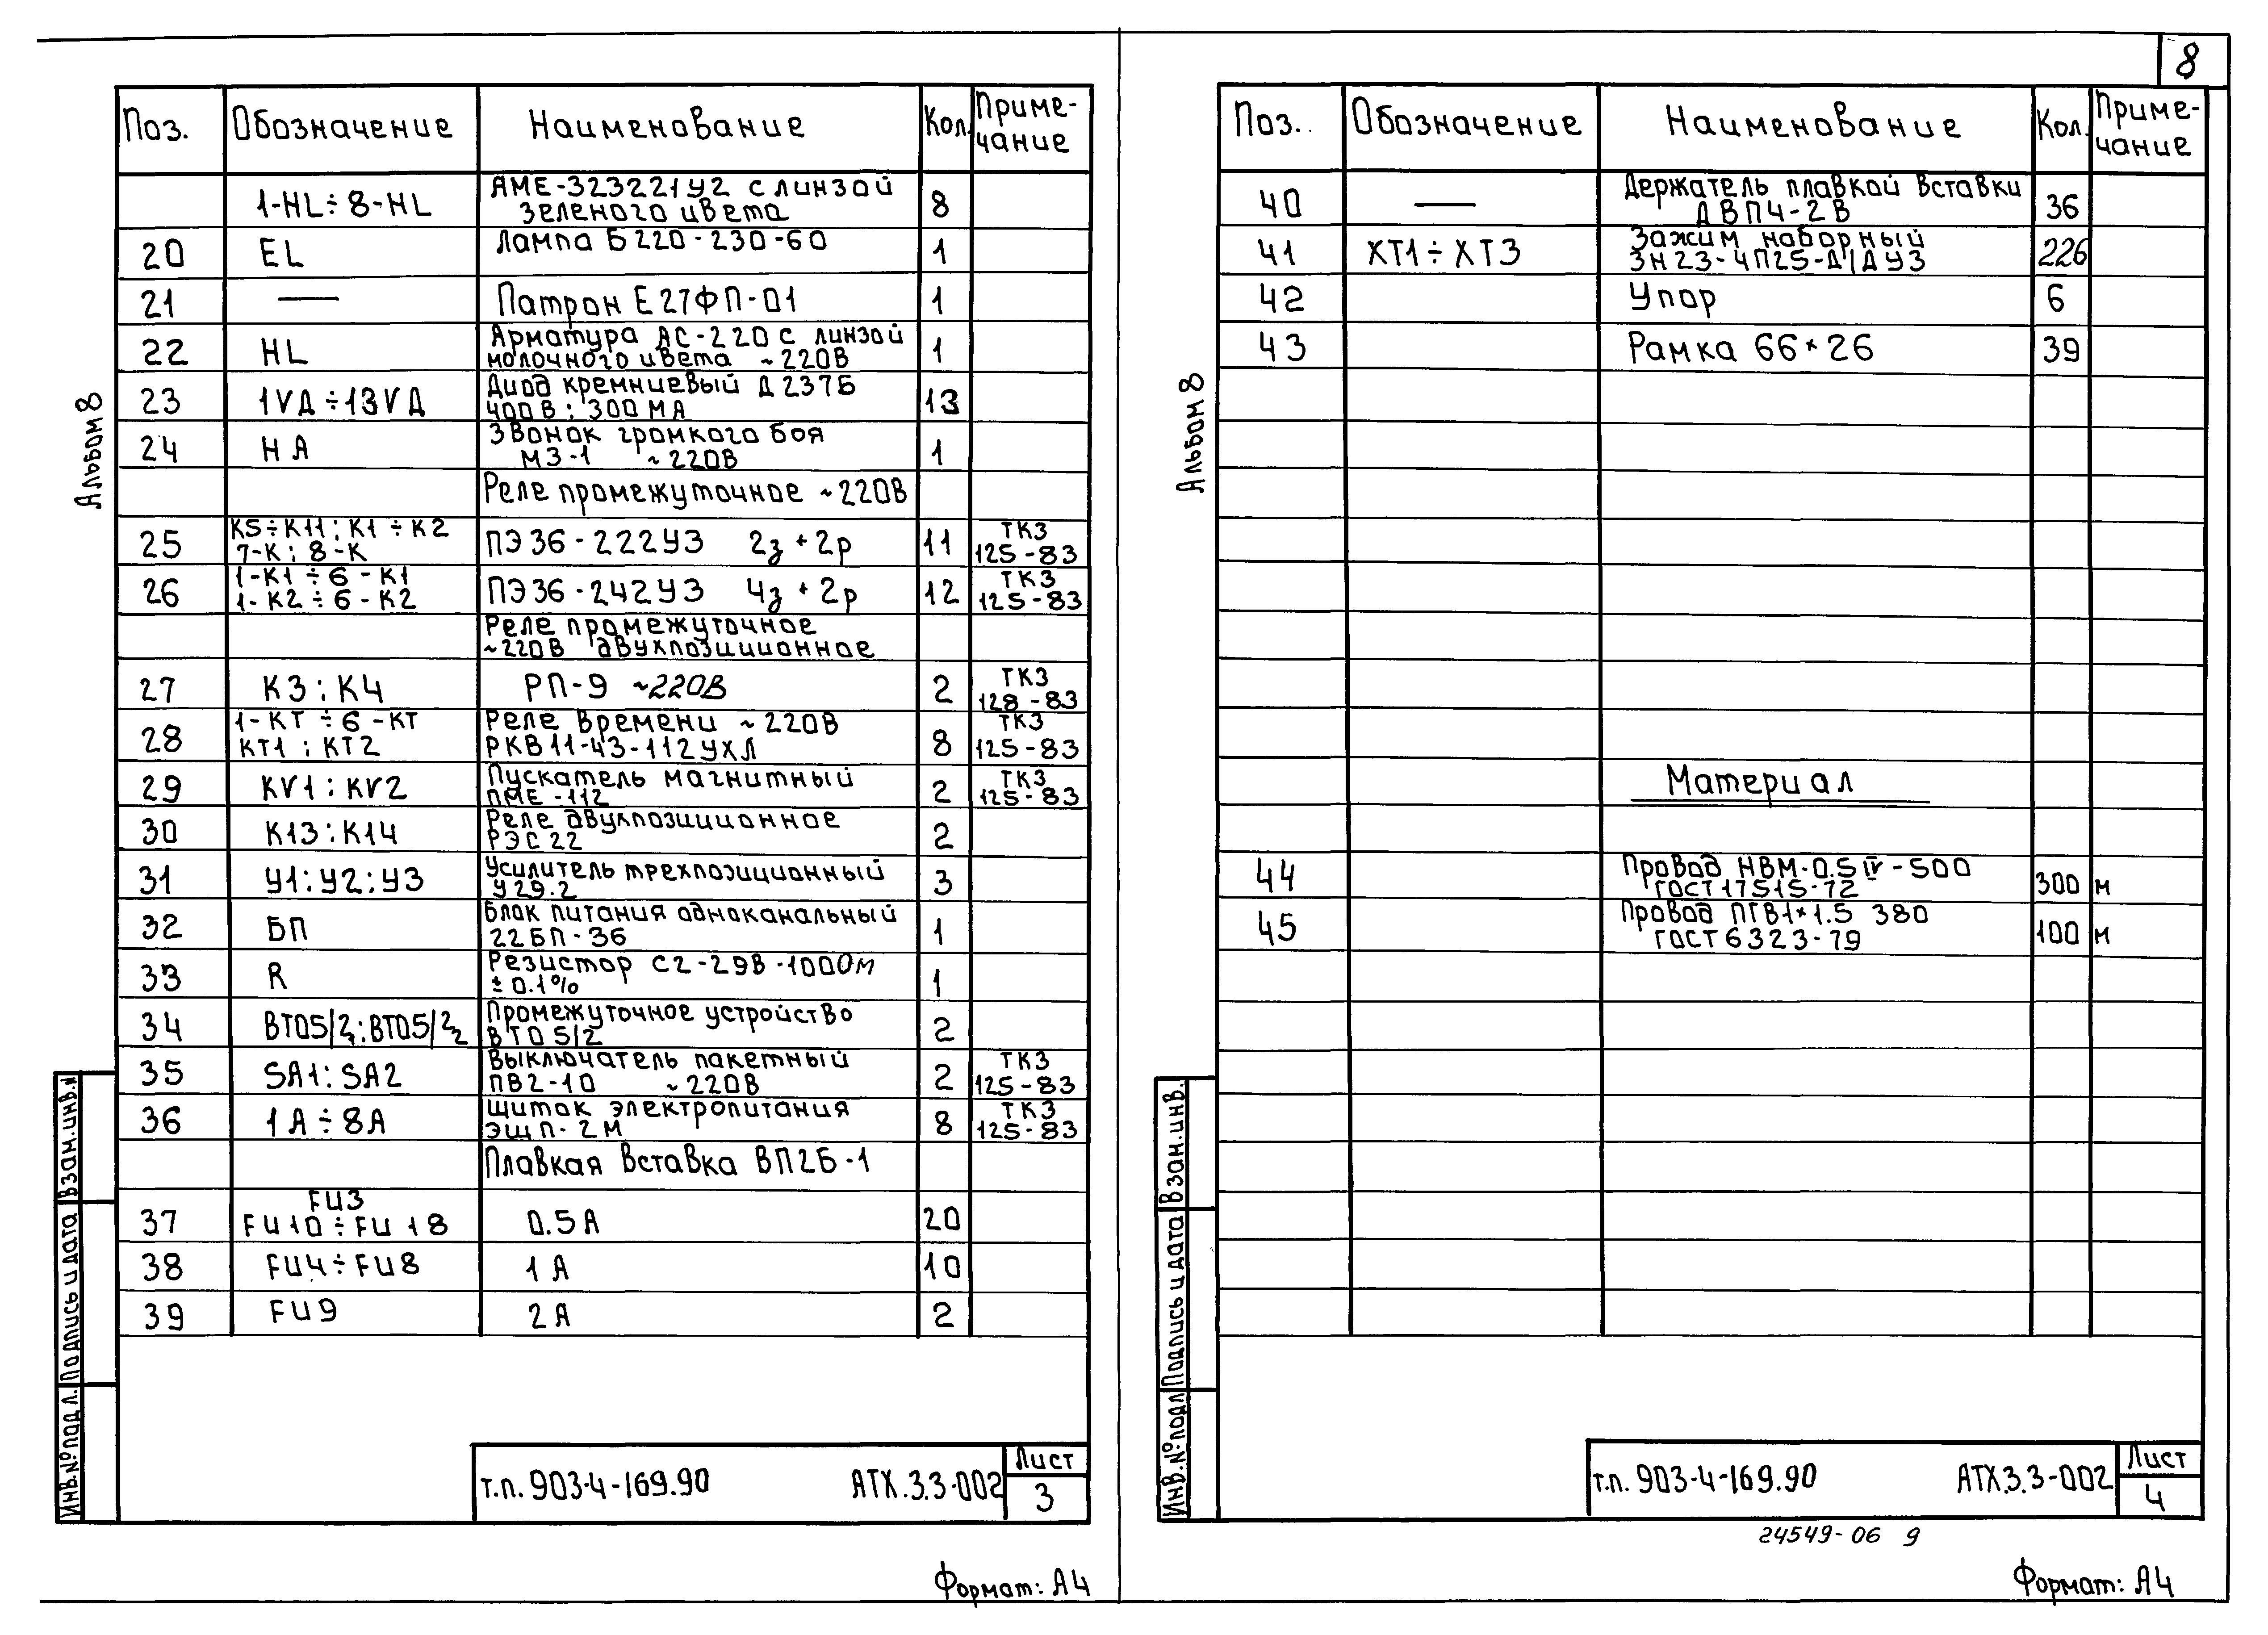 8
Альбом 8
Поз. Обозначение Наименование Кол. Приме-
чание
1-HL÷8-HL АМЕ-323221У2 с линзой 8
зеленого цвета
20 EL Лампа Б220-230-60 1
21 — Патрон Е27ФП-01 1
22 HL Арматура АС-220 с линзой 1
молочного цвета ~220В
23 1VД÷13VД Диод кремниевый Д237Б 13
400В; 300МА
24 НА Звонок громкого боя 1
МЗ-1 ~220В
Реле промежуточное ~220В
25 К5÷К11; К1÷К2 ПЭ36-222У3 2з+2р 11 ТКЗ
7-К; 8-К 125-83
26 1-К1÷6-К1 ПЭ36-242У3 4з+2р 12 ТКЗ
1-К2÷6-К2 125-83
Реле промежуточное
~220В двухпозиционное
27 К3; К4 РП-9 ~220В 2 ТКЗ
128-83
28 1-КТ÷6-КТ Реле времени ~220В 8 ТКЗ
КТ1; КТ2 РКВ11-43-112УХЛ 125-83
29 KV1; KV2 Пускатель магнитный 2 ТКЗ
ПМЕ-112 125-83
30 К13; К14 Реле двухпозиционное 2
РЭС22
31 У1; У2; У3 Усилитель трехпозиционный 3
У29.2
32 БП Блок питания одноканальный 1
22БП-36
33 R Резистор С2-29В-100Ом 1
±0.1%
34 ВТ05/2₁; ВТ05/2₂ Промежуточное устройство 2
ВТ05/2
35 SA1; SA2 Выключатель пакетный 2 ТКЗ
ПВ2-10 ~220В 125-83
36 1А÷8А Щиток электропитания 8 ТКЗ
ЭЩП-2М 125-83
Плавкая вставка ВП2Б-1
FU3
37 FU10÷FU18 0.5А 20
38 FU4÷FU8 1А 10
39 FU9 2А 2
Взам.инв.№
Подпись и дата
Инв.№подл.
т.п. 903-4-169.90 АТХ.3.3-002 Лист
3
Формат: А4
Альбом 8
Поз. Обозначение Наименование Кол. Приме-
чание
40 — Держатель плавкой вставки 36
ДВП4-2В
41 ХТ1÷ХТ3 Зажим наборный 226
ЗН23-4П25-Д/ДУ3
42 Упор 6
43 Рамка 66×26 39
Материал
44 Провод НВМ-0.5 IV-500 300 м
ГОСТ17515-72
45 Провод ПГВ1×1.5 380 100 м
ГОСТ6323-79
Взам.инв.
Подпись и дата
Инв.№подл
т.п. 903-4-169.90 АТХ.3.3-002 Лист
4
24549-06 9
Формат: А4